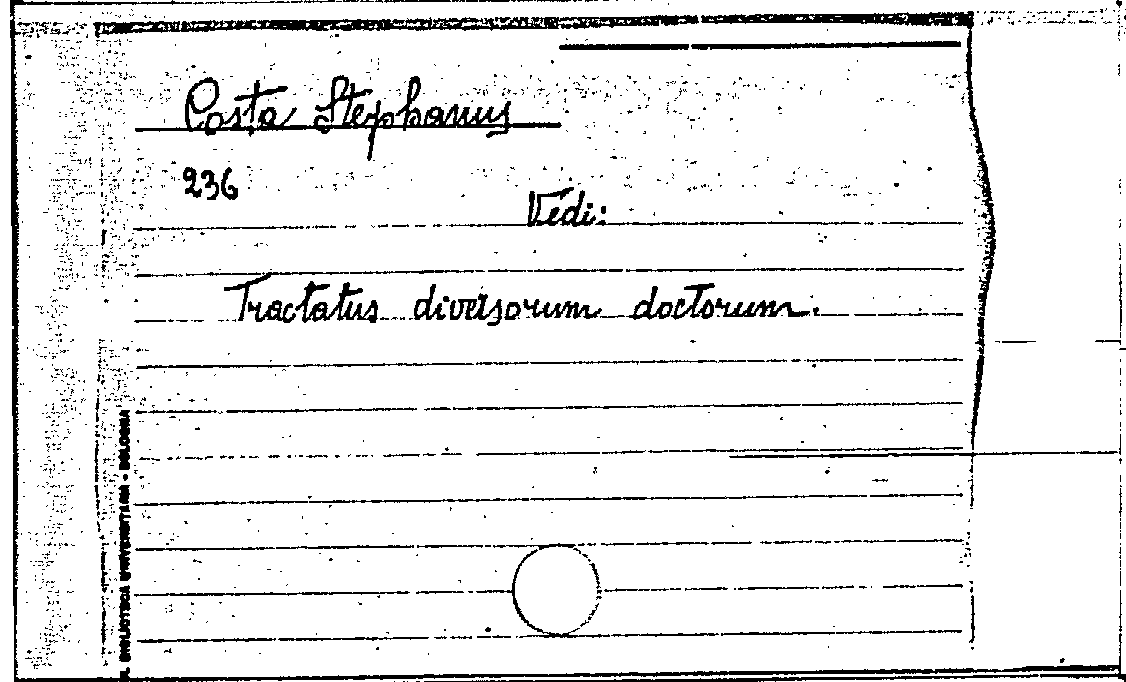 Costa Stephanus
236
Vedi:
Tractatus diversorum doctorum.
BIBLIOTECA UNIVERSITARIA - BOLOGNA